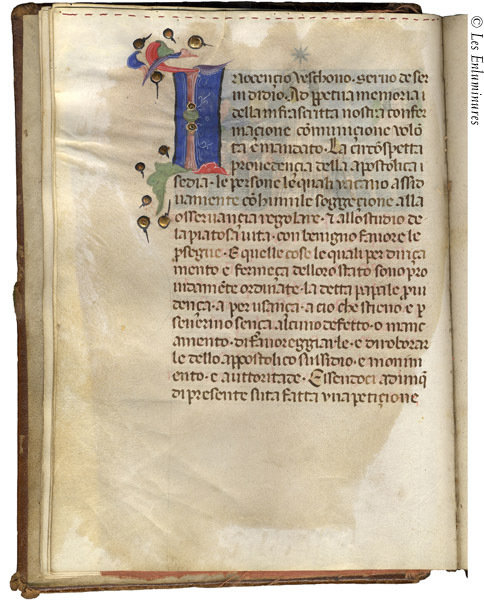 Innocençio veschovo · servo de ser
vi di dio. Ad p̱petua memoria i
della infrascritta nostra confer
maçione comuniçione volō
tà e mandato · La circōspetta
provedença della apostolica i
sedia · le persone le quali vacano assid
uamente cō humile soggeçione alla
osservança regolare · ⁊ allo studio de
la piatosa vita · con benigno favore le
p̱segue · E quelle cose le quali per diriça
mento e fermeça dello ro stato sono pro
vidamēte ordinate · la detta papale p̱vi
dença · a per usança · a cio che stieno e p̱
severino sença alcuno defetto · o manc
amento · di favoreggiarle · e di roborar
le dello appostolico sussidio · e monim
ento · e auttoritade · Essendoci adūq̄
di presente suta fatta una petiçione
© Les Enluminures